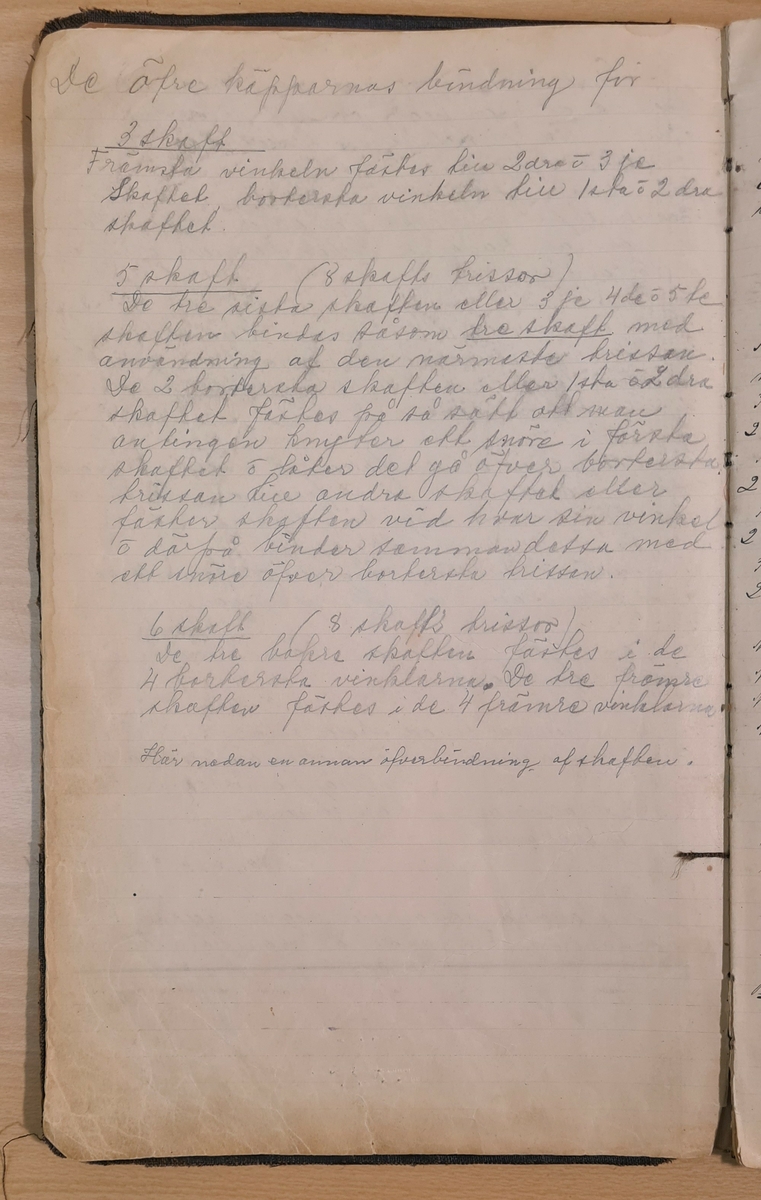 De öfre käpparnas bindning för
3 skaft
Främsta vinkeln fästes till 2dra o 3 je
Skaftet, bortersta vinkeln till 1sta o 2 dra
skaftet.
5 skaft (8 skafts trissor)
De tre sista skaften eller 3 je 4de o 5 te
skaften bindas såsom tre skaft med
användning af den närmaste trissan.
De 2 bortersta skaften eller 1sta o 2 dra
skaftet fästes på så sätt att man
antingen knyter ett snöre i första
skaftet o låter det gå öfver bortersta
trissan till andra skaftet eller
fäster skaften vid hvar sin vinkel
o därpå binder samman dessa med
ett snöre öfver bortersta trissan.
6 skaft (8 skafts trissor)
De tre bakre skaften fästes i de
4 bortersta vinklarna. De tre främre
skaften fästes i de 4 främre vinklarna
Här nedan en annan öfverbindning af skaften.